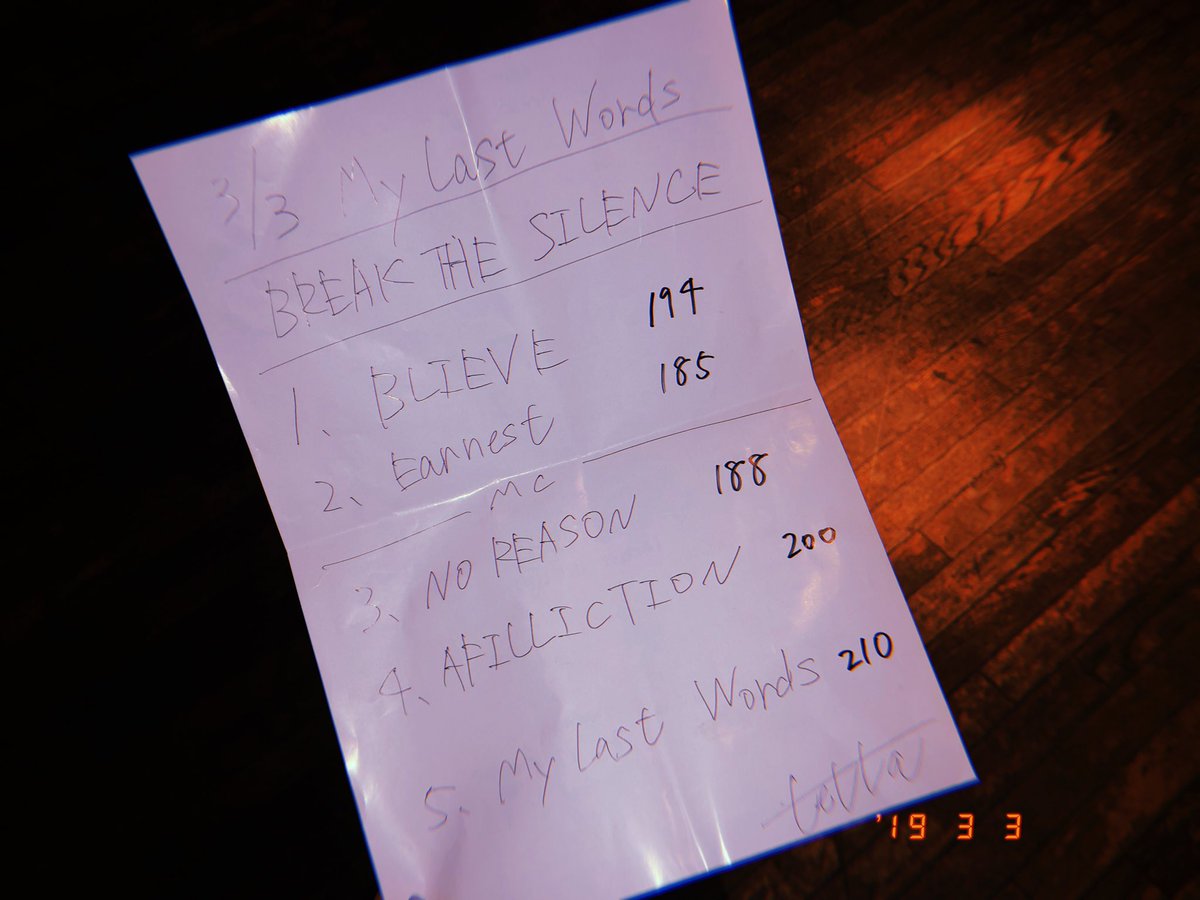 3/3 My Last Words
BREAK THE SILENCE
1、 BLIEVE 194
2、 Earnest 185
MC
3、 NO REASON 188
4、 AFILLICTION 200
5、 My Last Words 210
tetta
'19 3 3